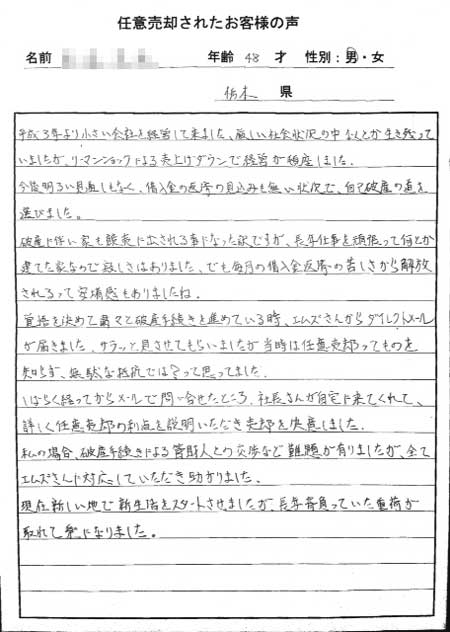 任意売却されたお客様の声
名前 年齢 48 才 性別：男・女
栃木 県
平成3年より小さい会社を経営して来ました、厳しい社会状況の中なんとか生き残って
いましたが、リーマンショックによる売上げダウンで経営が頓座しました.
今後明るい見通しもなく、借入金の返済の見込みも無い状況で、自己破産の道を
選びました。
破産に伴い家も競売に出される事になった訳ですが、長年仕事を頑張って何とか
建てた家なので寂しさはありました、でも毎月の借入金返済の苦しさから解放
されるって安堵感もありましたね.
覚悟を決めて粛々と破産手続きを進めている時、エムズさんからダイレクトメール
が届きました、サラッと見させてもらいましたが当時は任意売却ってものを
知らず、無駄な抵抗では?って思ってました.
しばらく経ってからメールで問い合せたところ、社長さんが自宅に来てくれて、
詳しく任意売却の利点を説明いただき売却を決意しました.
私の場合、破産手続きによる管財人との交渉など難題が有りましたが、全て
エムズさんに対応していただき助かりました。
現在新しい地で新生活をスタートさせましたが、長年背負っていた重荷が
取れて楽になりました。